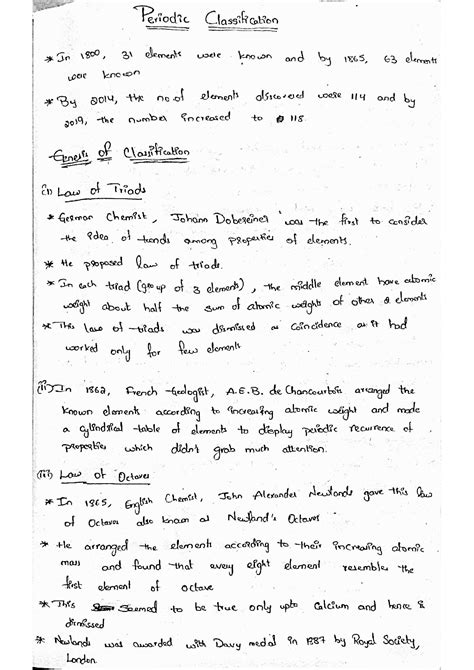 Periodic Classification
* In 1800, 31 elements were known and by 1865, 63 elements
were known
* By 2014, the no of elements discovered were 114 and by
2019, the number increased to 118.
Genesis of Classification
(i) Law of Triads
* German Chemist, Johann Dobereiner was the first to consider
the idea of trends among properties of elements.
* He proposed law of triads.
* In each triad (group of 3 elements), the middle element have atomic
weight about half the sum of atomic weights of other 2 elements
* This law of triads was dismissed as coincidence as it had
worked only for few elements
(ii) In 1862, French Geologist, A.E.B. de Chancourtois arranged the
known elements according to increasing atomic weight and made
a cylindrical table of elements to display periodic recurrence of
properties which didn't grab much attention.
(iii) Law of Octaves
* In 1865, English Chemist, John Alexander Newlands gave this law
of Octaves also known as Newland's Octaves
* He arranged the elements according to their increasing atomic
mass and found that every eight element resembles the
first element of octave
* This seemed to be true only upto Calcium and hence is
dismissed
* Newlands was awarded with Davy medal in 1887 by Royal Society,
London.